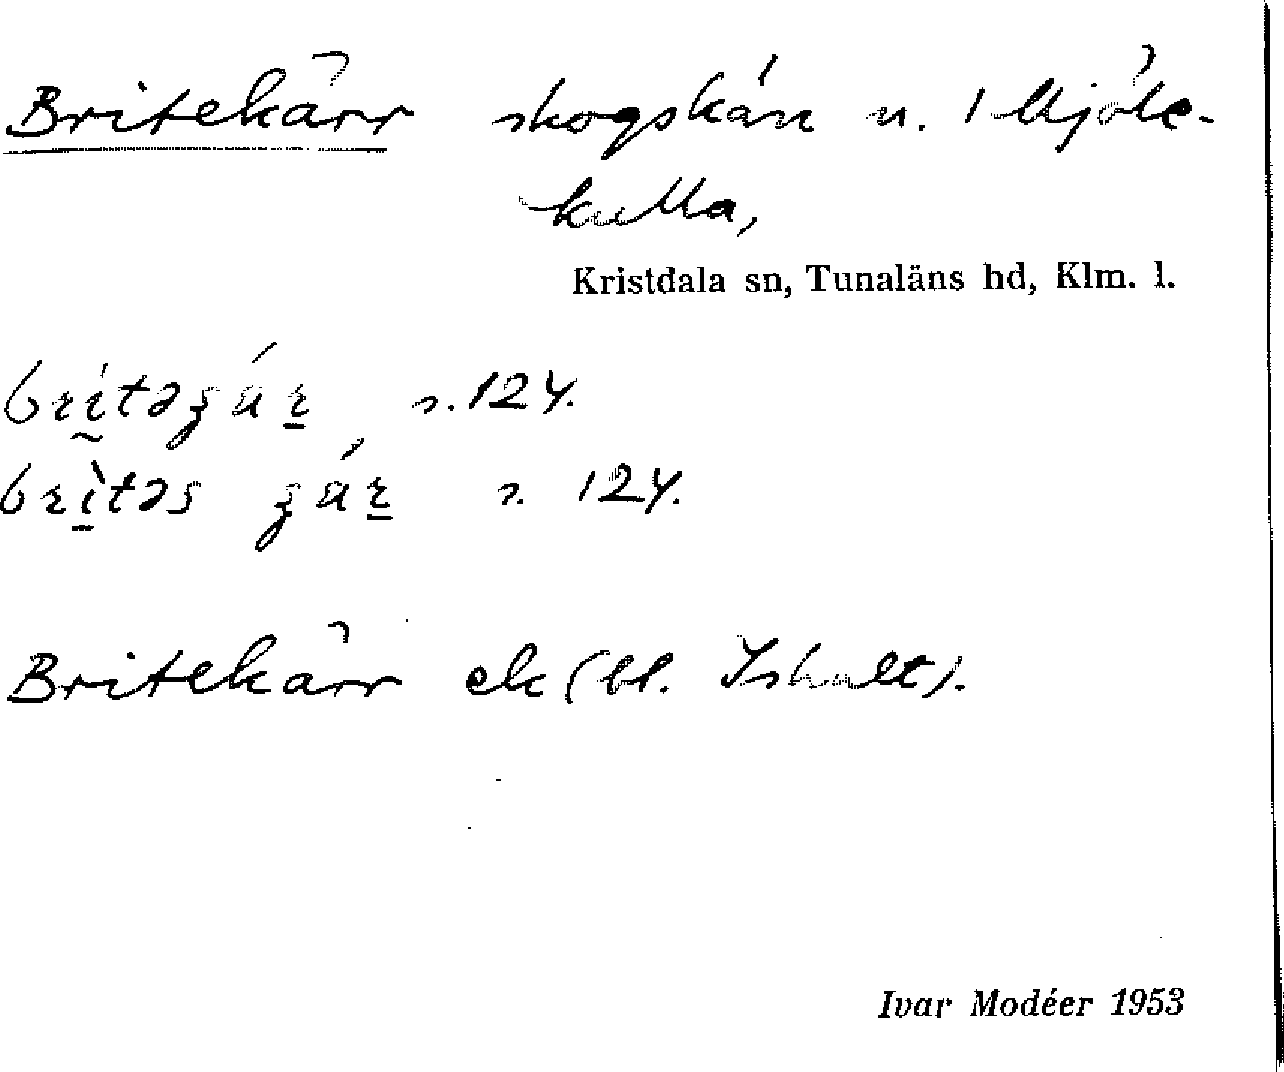 Britekärr skogskärr u. 1 Mjöle-
kulla,
Kristdala sn, Tunaläns hd, Klm. l.
s. 124.
s. 124.
Britekärr ek (bl. Ishult).
Ivar Modéer 1953